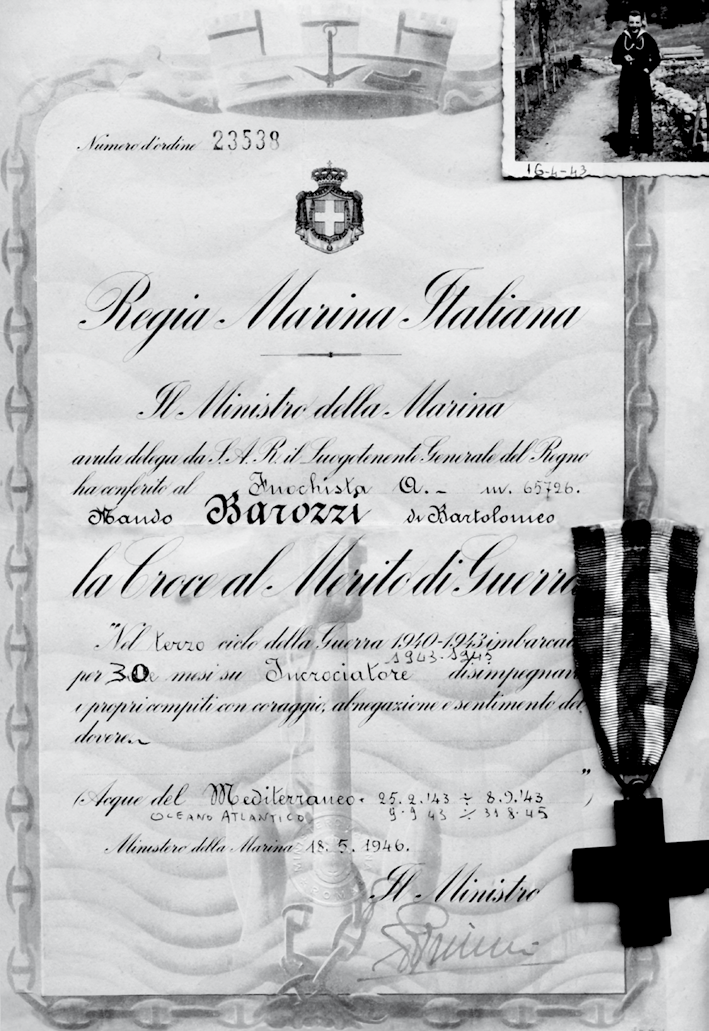 Numero d'ordine 23538
16-4-43
Regia Marina Italiana
Il Ministro della Marina
avuta delega da S. A. R. il Luogotenente Generale del Regno
ha conferito al Fuochista A. – m. 65726.
Nando Barozzi di Bartolomeo
la Croce al Merito di Guerra
"Nel terzo ciclo della Guerra 1940-1943 imbarcat
1943-1945
per 30 mesi su Incrociatore disimpegnav
i propri compiti con coraggio, abnegazione e sentimento del
dovere.
"
(Acque del Mediterraneo. 25.2.'43 ÷ 8.9.'43 )
OCEANO ATLANTICO 9.9.43 ÷ 31.8.45
Ministero della Marina 18.5.1946.
Il Ministro